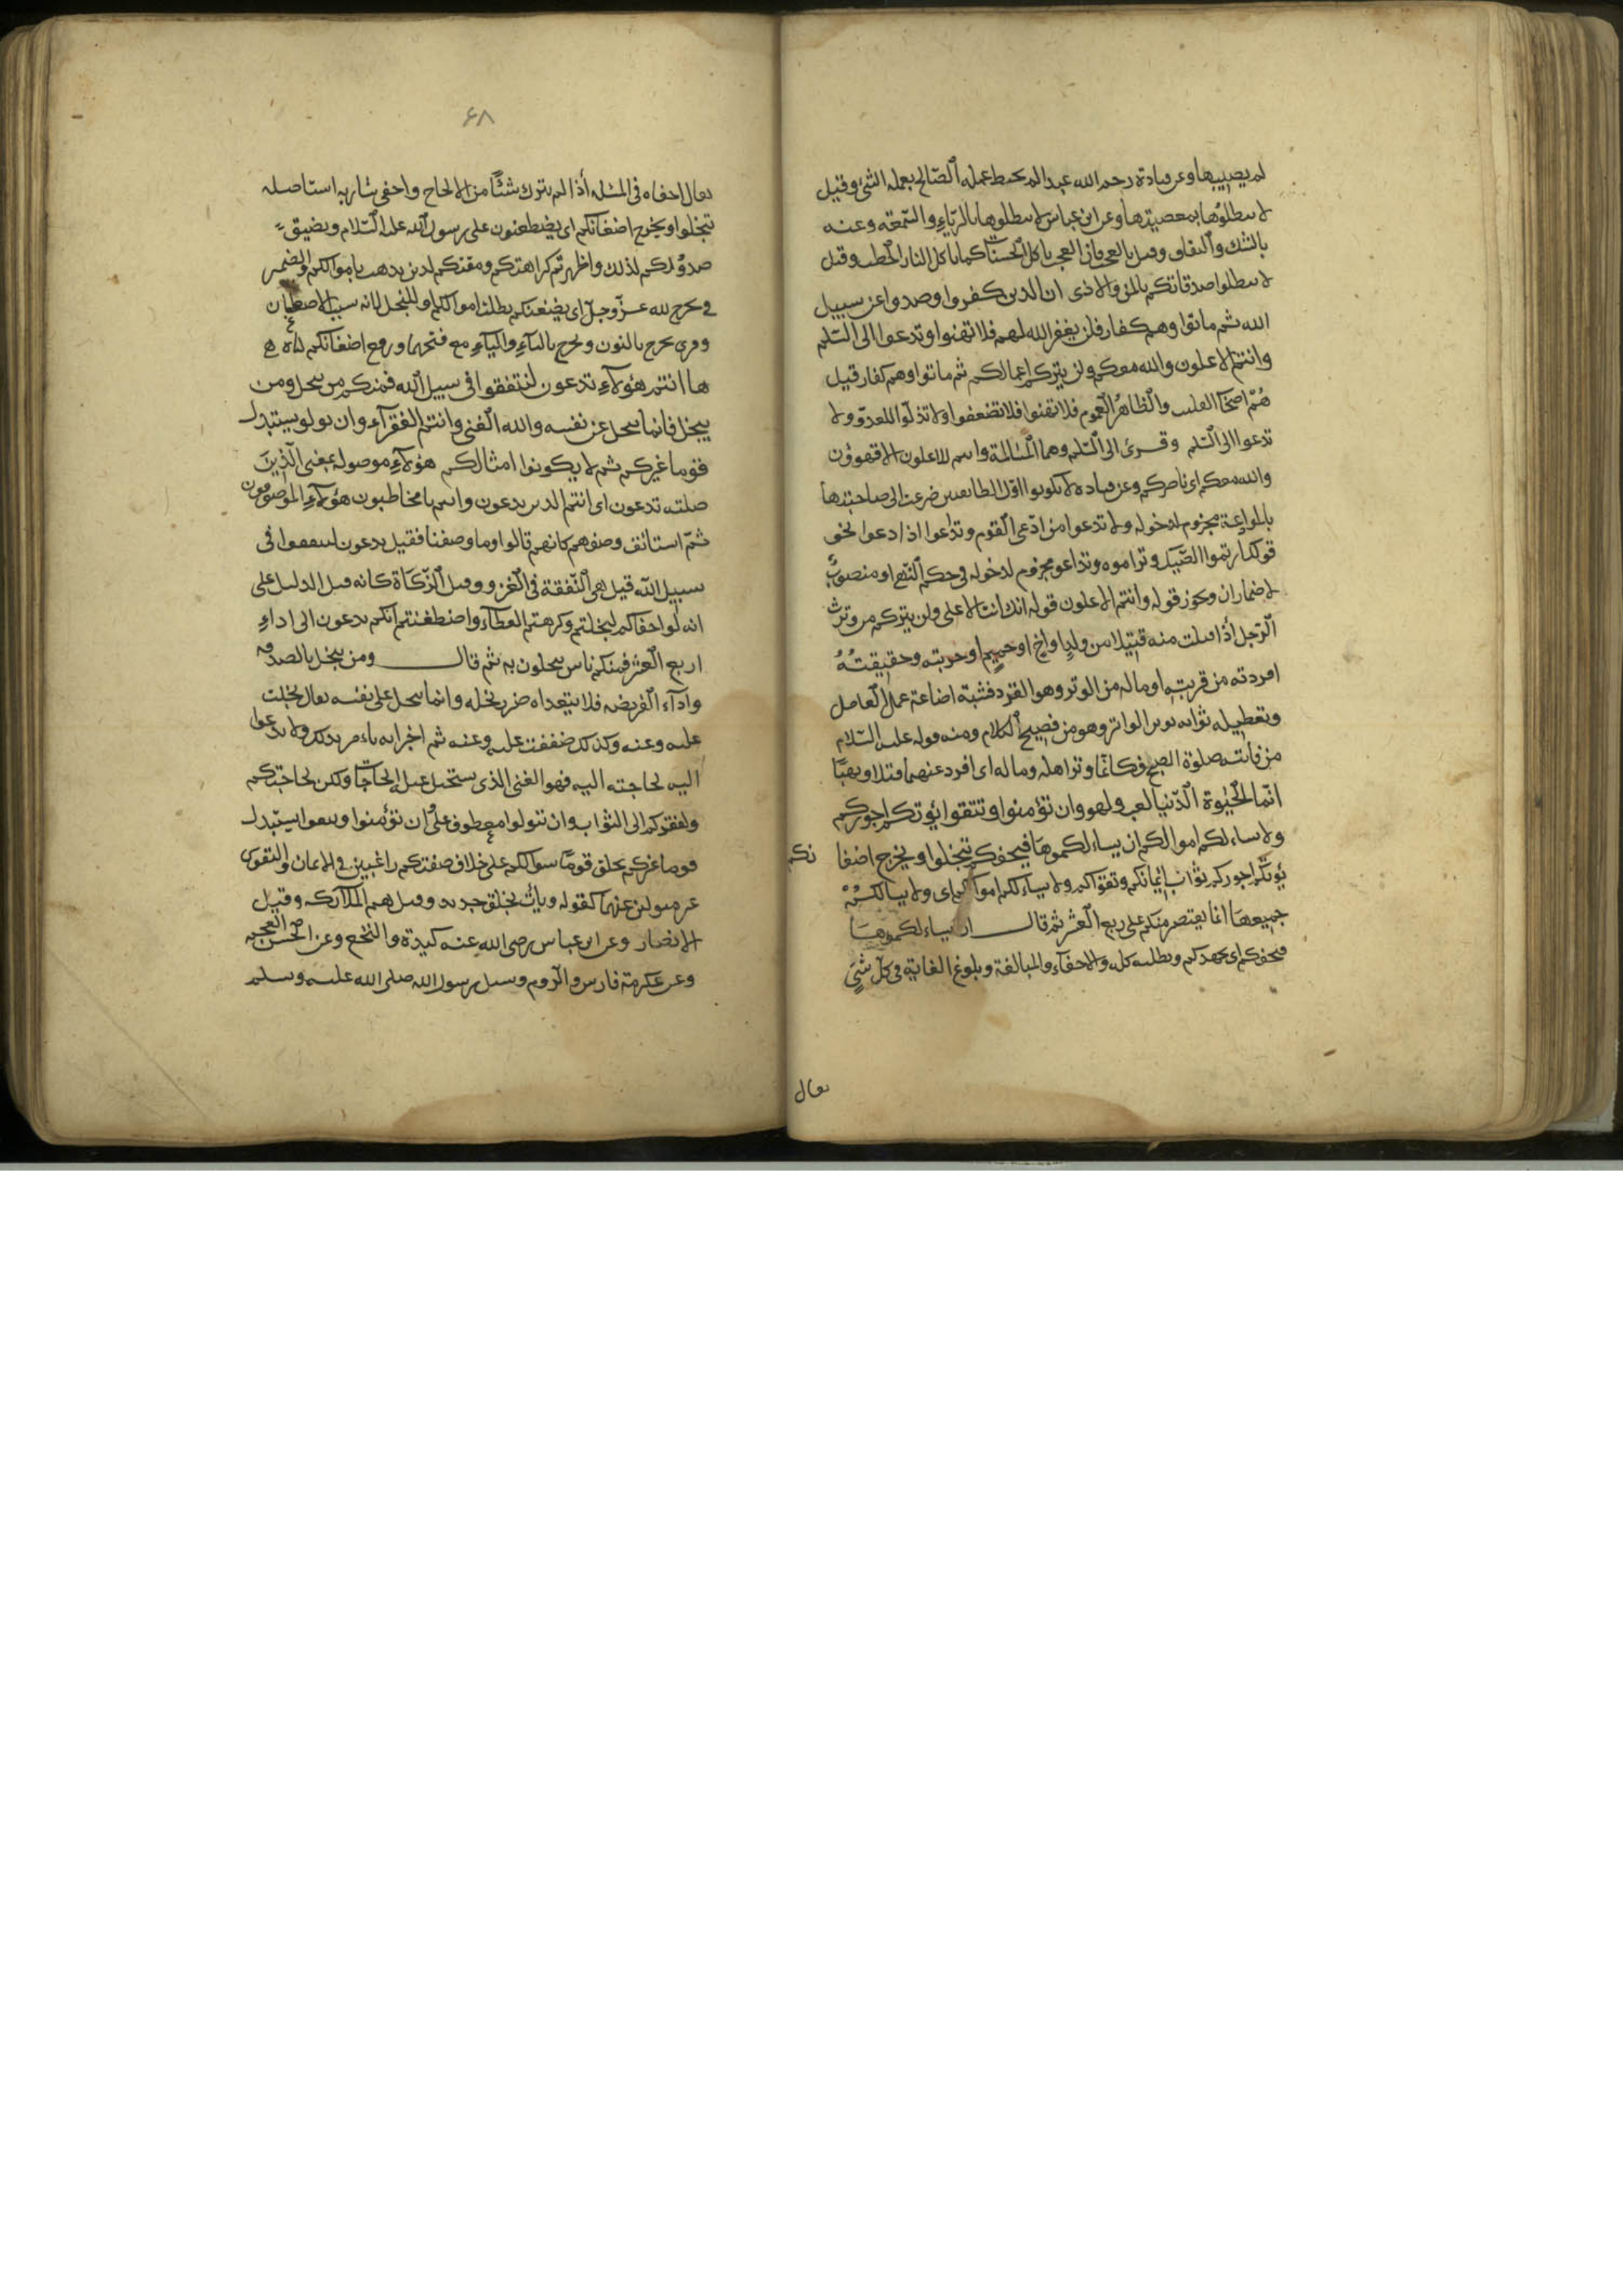 لم يصيبها وعن قتادة رحمه الله عبد الم يحبط عمله الصالح بعمله السّئ وقيل
لا تبطلوها بمعصيتهما وعن ابن عباس لا تبطلوها بالرياء والسمعة وعنه
بالشك والنفاق وقيل بالعجب فان العجب ياكل الحسنات كما تاكل النار الحطب وقيل
لا تبطلوا صدقاتكم بالمن والاذى ان الذين كفروا وصدوا عن سبيل
الله ثم ماتوا وهم كفار فلن يغفر الله لهم فلا تهنوا وتدعوا الى السّلم
وانتم الاعلون والله معكم ولن يتركم اعمالكم ثم ماتوا وهم كفار قيل
هُمْ اصحاب القليب والظاهر العموم فلا تهنوا فلا تضعفوا ولا تذلّوا للعدوّ ولا
تدعوا الى السّلم وقرئ الى السّلم وهما المسالمة وانتم الاعلون الاقهرون
والله معكم اى ناصركم وعن قتادة لا تكونوا اوّل الطائفتين ضرعت الى صاحبتها
بالموادعة مجزوم لدخوله ولا تدعوا من ادّعى القوم وتداعوا اذا دعوا نحو
قولك ارتموا الصّيد وتراموه وتداعو مجزوم لدخوله فى حكم النّهى او منصوبٌ
لاضمار ان ونحو قوله وانتم الاعلون قوله انك انت الاعلى ولن يتركم من وترت
الرّجل اذا قتلت منه قتيلا من ولدٍ او اخٍ او حميمٍ او حربته وحقيقتُهُ
افردته من قريبه او ماله من الوتر وهو الفرد فشبّه اضاعة عمل العامل
وتعطيله ثوابه بوتر الواتر وهو من فصيح الكلام ومنه قوله عليه السّلام
من فاتته صلوة العصر فكانّما وتر اهله وماله اى افرد عنهما قتلا ونهبًا
انّما الحيوة الدّنيا لعب ولهو وان تؤمنوا وتتقوا يؤتكم اجوركم
ولا يساءلكم اموالكم ان يساءلكموها فيحفكم تبخلوا ويخرج اضغا نكم
يؤتكم اجوركم ثواب ايمانكم وتقواكم ولا يساءلكم اموالكم اى ولا يسالكم
جميعها انما يقتصر منكم على ربع العشر ثم قال ان يساءلكموها
فيحفكم اى يجهدكم ويطلبه كله والاحفاء والمبالغة وبلوغ الغاية فى كلّ شئٍ
يقال
۶۸
يقال احفاه فى المسئله اذا لم يترك شئًا من الالحاح واحفى شاربه استاصله
تبخلوا ويخرج اضغانكم اى يضطغنون على رسول الله عليه السّلام وتضيق
صدورُكم لذلك واظهرتم كراهتكم ومقتكم لدين يذهب باموالكم والضمير
فى يخرج لله عزّ وجلّ اى يضغنكم بطلب اموالكم او للبخل لانه سبب الاضطغان
وقرئ نخرج بالنون ويخرج بالتاءِ والياءِ مع فتحهما ورفع اضغانكم
ها انتم هؤلاءِ تدعون لتنفقوا فى سبيل الله فمنكم من يبخل ومن
يبخل فانما يبخل عن نفسه والله الغنى وانتم الفقراء وان تولوا يستبدل
قوما غيركم ثم لا يكونوا امثالكم هؤلاءِ موصوله بمعنى الّذين
صلته تدعون اى انتم الذين تدعون وانتم يا مخاطبون هؤلاءِ الموصوفون
ثمّ استانف وصفهم كانهم قالوا وما وصفنا فقيل تدعون لتنفقوا فى
سبيل الله قيل هى النّفقة فى الغزو وقيل الزّكاة كانه قيل الدليل على
انه لو احفاكم لبخلتم وكرهتم العطاء واضطغنتم انكم تدعون الى اداءِ
اربع العشر فمنكم ناس يبخلون به ثم قال ومن يبخل بالصدقه
واداء الفريضه فلا يتعداه ضر بخله وانما يبخل على نفسه يقال بخلت
عليه وعنه وكذلك ضننت عليه وعنه ثم اخبر انه لا يامر بذلك ولا يدعوا
اليه لحاجته اليه فهو الغنى الذى يستحيل عليه الحاجات ولكن لحاجتكم
ولفقركم الى الثواب وان تتولوا معطوف على وان تؤمنوا وتتقوا يستبدل
قوما غيركم يخلق قومًا سواكم على خلاف صفتكم راغبين فى الايمان والتقوى
غير متولين عنهما كقوله ويأت بخلق جديد وقيل هم الملائكة وقيل
الانصار وعن ابن عباس رضى الله عنه كندة والنخع وعن الحسن العجم
وعن عكرمة فارس والرّوم وسئل رسول الله صلى الله عليه وسلم